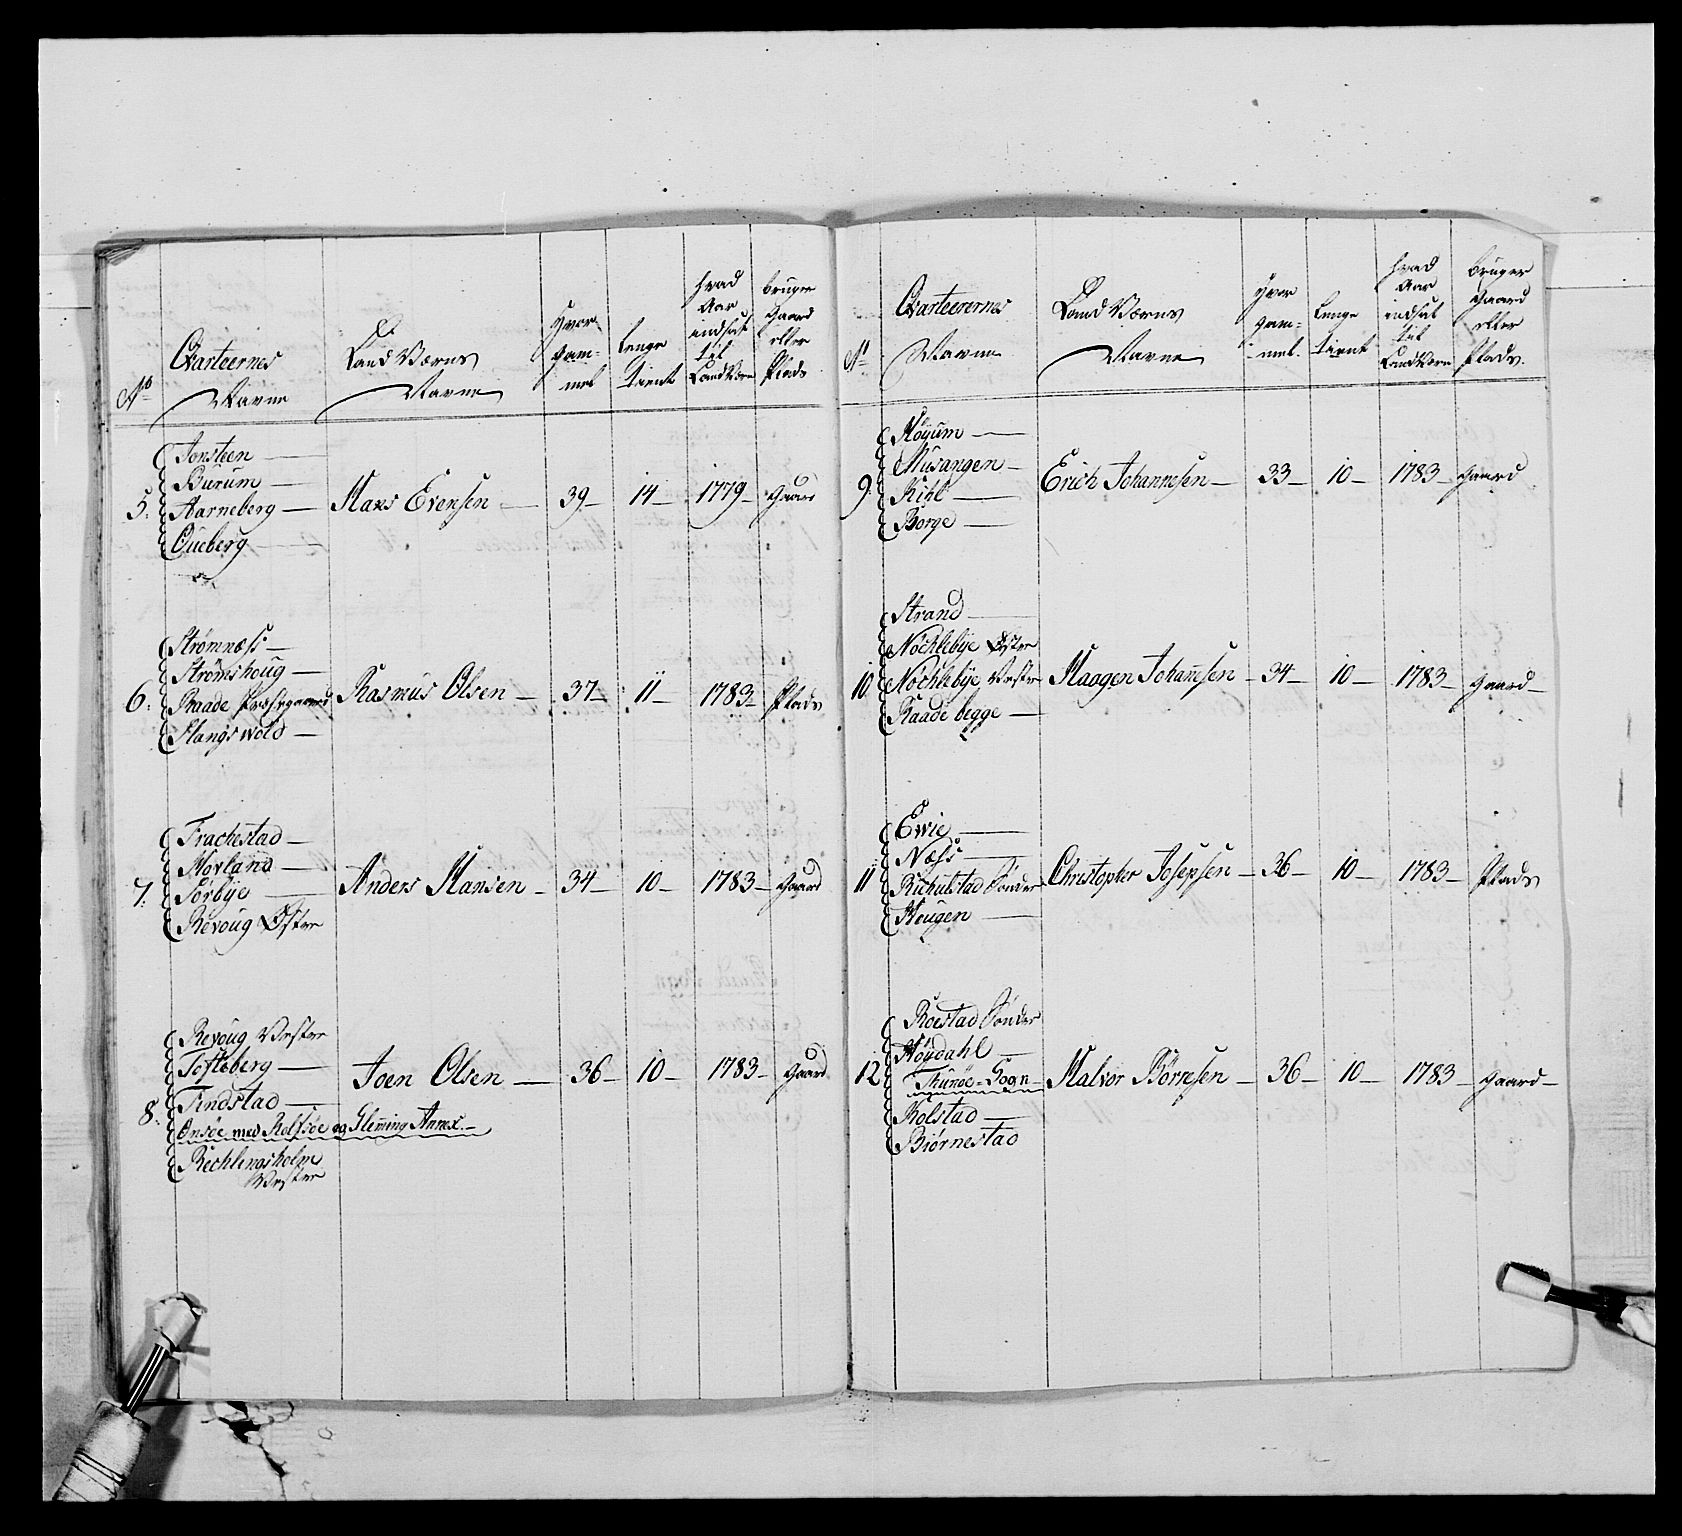 No
Qvarteernes
Navne
Land Værns
Navne
Hvor
gam-
mel
Lenge
tient
hvad
Aar
indsat
til
LandVærn
bruger
Gaard
eller
Plads
5.
Tonsteen —
Burum —
Aarneberg —
Oueberg —
Hans Evensen — 39 — 14 — 1779 — Gaard
6.
Strömnæss —
Strömshoug —
Raade Præstegaard
Slangswold —
Rasmus Olsen — 37 — 11 — 1783 — Plads
7.
Frachestad —
Hovland —
Sörbye —
Revoug Öster
Anders Hansen — 34 — 10 — 1783 — Gaard
8.
Revoug Vester
Tofteberg —
Findstad —
Onsöe med Rolfsöe og Glemming Annex. —
Rechlingsholm
Vester
Joen Olsen — 36 — 10 — 1783 — Gaard
No
Qvarteerernes
Navne
Land Værns
Navne
Hvor
gam-
mel.
Lenge
tient
hvad
Aar
indsat
til
LandVærn
bruger
Gaard
eller
Plads.
9.
Höyum —
Musangen —
Kihl —
Borge —
Erich Johannesen — 33 — 10 — 1783 — Gaard
10
Strand —
Nöchlebye Öster
Nöchlebye Vester
Raade begge —
Haagen Johannesen — 34 — 10 — 1783 — Gaard —
11
Evie —
Næss —
Richulstad Sönder
Hougen —
Christopher Josepsen — 36 — 10 — 1783 — Plads
12
Roestad Sönder
Höydahl —
Thunöe-Sogn —
Kolstad —
Biörnestad
Halvor Börresen — 36 — 10 — 1783 — Gaard —